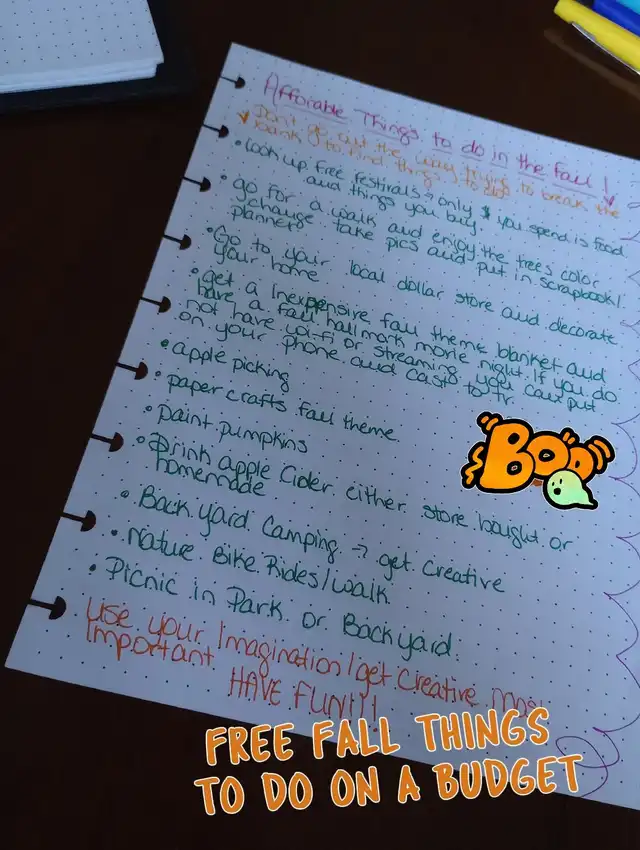 Afforable Things to do in the fall!
Don't go out the way trying to break the
bank to find things to do
• look up free festivals → only $ you spend is food
and things you buy.
• go for a walk and enjoy the trees color
change take pics and put in scrapbook/
planners
• Go to your local dollar store and decorate
your home
• get a Inexpensive fall theme blanket and
have a fall hallmark movie night. If you do
not have wi-fi or streaming you can put
on your phone and cast to tv.
• apple picking
• paper crafts fall theme
• paint pumpkins
• Drink apple Cider either store bought or
homemade
• Back yard Camping → get Creative
• Nature Bike Rides/walk
• Picnic in Park or Backyard.
Use your Imagination/get Creative Most
Important
HAVE FUN!!!
BOO
FREE FALL THINGS
TO DO ON A BUDGET